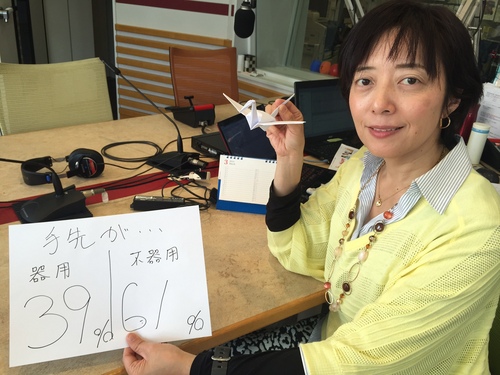 手先が・・・
器用 不器用
39% 61%